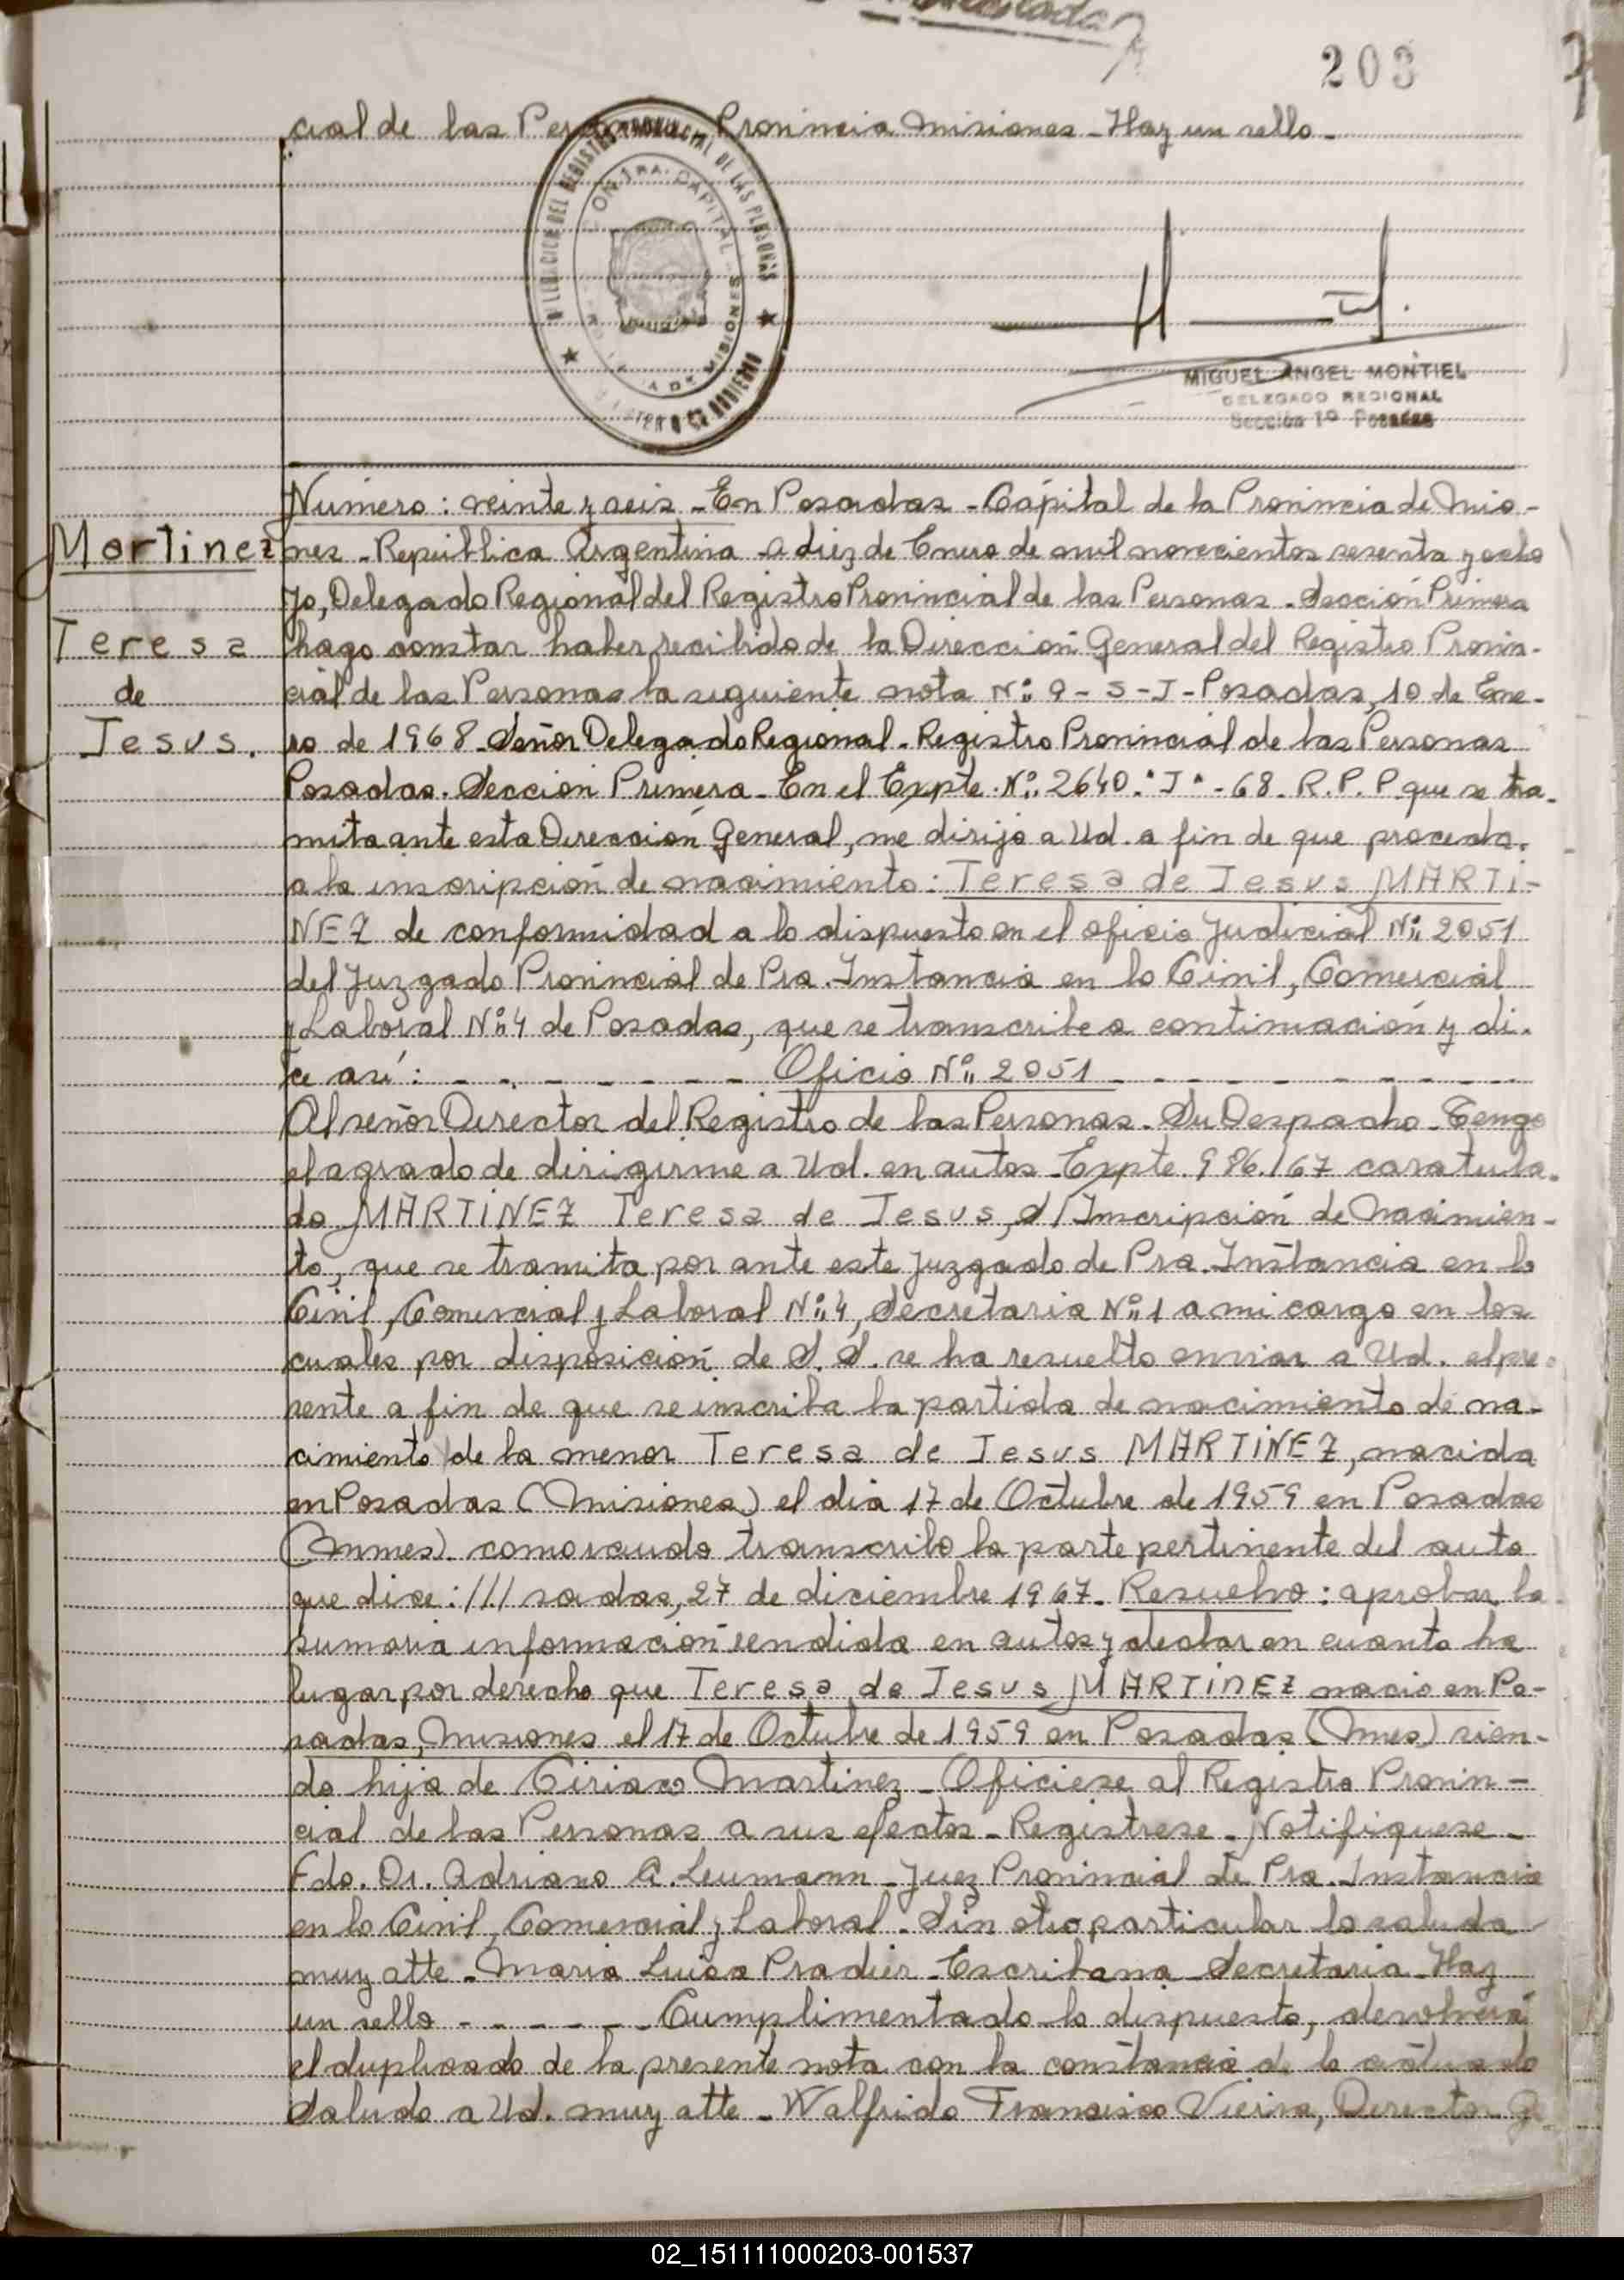 203
cial de las Personas Provincia Misiones - Hay un sello -
DIRECCION DEL REGISTRO PROVINCIAL DE LAS PERSONAS
CAPITAL
DE MISIONES
MIGUEL ANGEL MONTIEL
DELEGADO REGIONAL
Sección 1º Posadas
Número: veinte y seis - En Posadas - Cápital de la Provincia de Misio-
Martinez
nes - República Argentina a diez de Enero de mil novecientos sesenta y ocho
Yo, Delegado Regional del Registro Provincial de las Personas - Sección Primera
Teresa
hago constar haber recibido de la Dirección General del Registro Provin-
de
cial de las Personas la siguiente nota Nº: 9 - S - J - Posadas, 10 de Ene-
Jesus.
ro de 1968 - Señor Delegado Regional - Registro Provincial de las Personas
Posadas. Sección Primera - En el Expte. Nº: 2640 "J" - 68 - R. P. P. que se tra-
mita ante esta Dirección General, me dirijo a Ud. a fin de que proceda
a la inscripción de nacimiento: Teresa de Jesus MARTI-
NEZ de conformidad a lo dispuesto en el oficio Judicial Nº: 2051
del Juzgado Provincial de Pra. Instancia en lo Civil, Comercial
y Laboral Nº: 4 de Posadas, que se transcribe a continuación y di-
ce así: - - - - - - - Oficio Nº: 2051 - - - - - - - - -
Al señor Director del Registro de las Personas. Su Despacho - Tengo
el agrado de dirigirme a Ud. en autos - Expte. 986/67 caratula-
do MARTINEZ Teresa de Jesus, s/Inscripción de Nacimien-
to, que se tramita por ante este Juzgado de Pra. Instancia en lo
Civil, Comercial y Laboral Nº: 4, Secretaria Nº: 1 a mi cargo en los
cuales por disposición de S. S. se ha resuelto enviar a Ud. el pre-
sente a fin de que se inscriba la partida de nacimiento de na-
cimiento de la menor Teresa de Jesus MARTINEZ, nacida
en Posadas (Misiones) el dia 17 de Octubre de 1959 en Posadas
(Mnes). comorcaudo transcribo la parte pertinente del auto
que dice: /// sadas, 27 de diciembre 1967. Resuelvo: aprobar la
sumaria información rendida en autos y declarar en cuanto ha
lugar por derecho que Teresa de Jesus MARTINEZ nacio en Po-
sadas, Misiones el 17 de Octubre de 1959 en Posadas (Mnes) sien-
do hija de Ciriaco Martinez - Oficiese al Registro Provin-
cial de las Personas a sus efectos - Registrese - Notifiquese -
Fdo. Dr. Adriano G. Leumann - Juez Provincial de Pra. Instancia
en lo Civil, Comercial y Laboral - Sin otro particular lo saluda
muy atte - Maria Luisa Pradier - Escribana Secretaria - Hay
un sello - - - - - - Cumplimentado lo dispuesto, devolverá
el duplicado de la presente nota con la constancia de lo actuado
Saludo a Ud. muy atte - Walfrido Francisco Vieira, Director Ge-
02_151111000203-001537